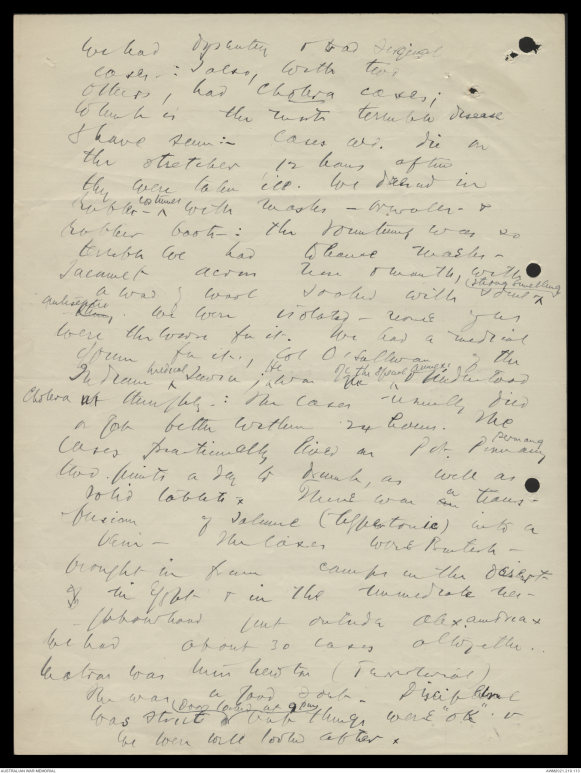 We had dysentery & bad surgical
cases -: I also, with two
others, had cholera cases;
which is the most terrible disease
I have seen:- cases wd. die on
the stretcher 12 hours after
they were taken ill. We dressed in
rubber - costumes with masks - overalls - &
rubber boots -: the vomiting was so
terrible we had to have masks -
across nose & mouth, with
a wad of wool soaked with strong smelling
antiseptic. We were isolated - none of us
were the worse for it. We had a medical
down for it, Col O'Sullivan of the
Indian medical Service; He was i/c the special group & understood
Cholera thoroughly -: The cases usually died
or got better within 24 hours. The
cases practically lived on Pot. Permang
two pints a day to drink, as well as
solid tablets. There was a trans-
-fusion of Saline (Hypertonic) into a
vein - The cases were British -
brought in from camps in the Desert -
in Egypt & in the immediate nei-
-ghbourhood just outside Alexandria
We had about 30 cases altogether..
Matron was Miss (Territorial)
She was a good sort - Discipline
was strict & but things were "ok" - &
We were well looked after.
AUSTRALIAN WAR MEMORIAL